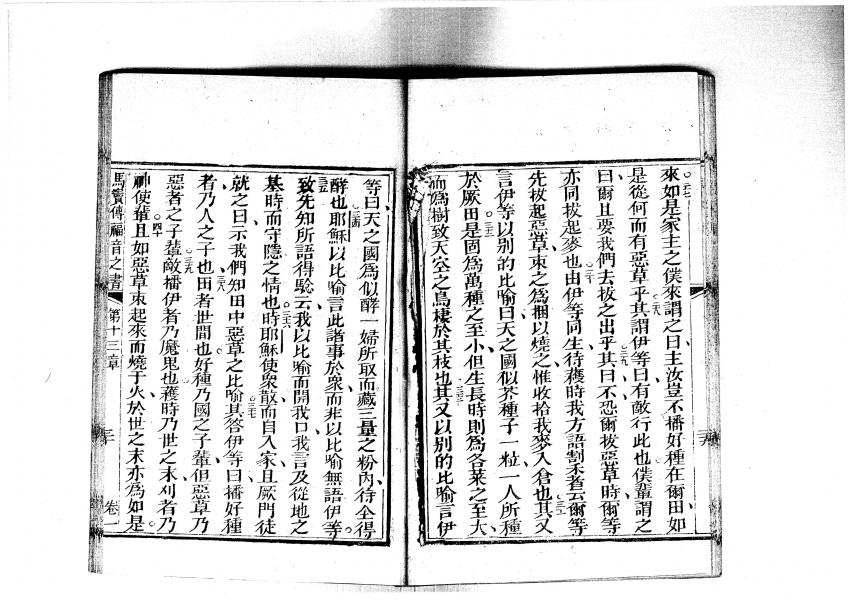 二七來如是家主之僕來謂之曰主汝豈不播好種在爾田如
是從何而有惡草乎二八其謂伊等曰有敵行此也僕輩謂之
曰爾且要我們去拔之出乎二九其曰不恐爾拔惡草時爾等
亦同拔起麥也三十由伊等同生待穫時我方語割禾者云爾等
先拔起惡草束之為捆以燒之惟收拾我麥入倉也三一其又
言伊等以別的比喻曰天之國似芥種子一粒一人所種
於厥田三二是固為萬種之至小但生長時則為各菜之至大
而為樹致天空之鳥棲於其枝也三三其又以別的比喻言伊
等曰天之國為似酵一婦所取而藏三量之粉內待全得
酵也三四耶穌以比喻言此諸事於眾而非以比喻無語伊等
三五致先知所語得騐云我以比喻而開我口我言及從地之
基時而守隱之情也三六時耶穌使眾散而自入家且厥門徒
就之曰示我們知田中惡草之比喻三七其答伊等曰播好種
者乃人之子也三八田者世間也好種乃國之子輩但惡草乃
惡者之子輩三九敵播伊者乃魔鬼也穫時乃世之末刈者乃
神使輩四十且如惡草束起來而燒于火於世之末亦為如是
馬竇傳福音之書 第十三章 二十 卷一